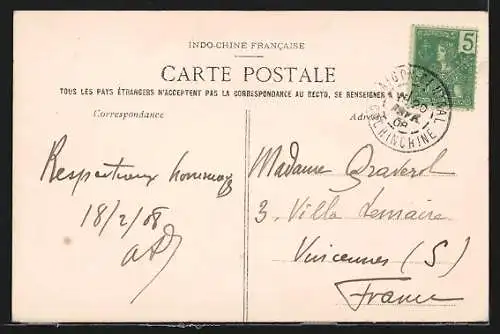 INDO-CHINE FRANÇAISE
CARTE POSTALE
TOUS LES PAYS ÉTRANGERS N'ACCEPTENT PAS LA CORRESPONDANCE AU RECTO, SE RENSEIGNER
Correspondance
5
COCHINCHINE
Respectueux hommages
18/2/08
Madame Graverol
3, Villa Lemaire
Vincennes (S)
France